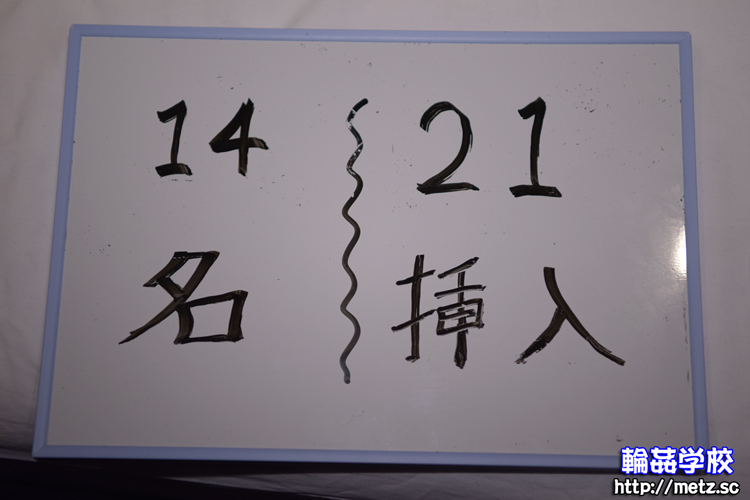 14 21
名 挿入
輪姦学校
http://metz.sc